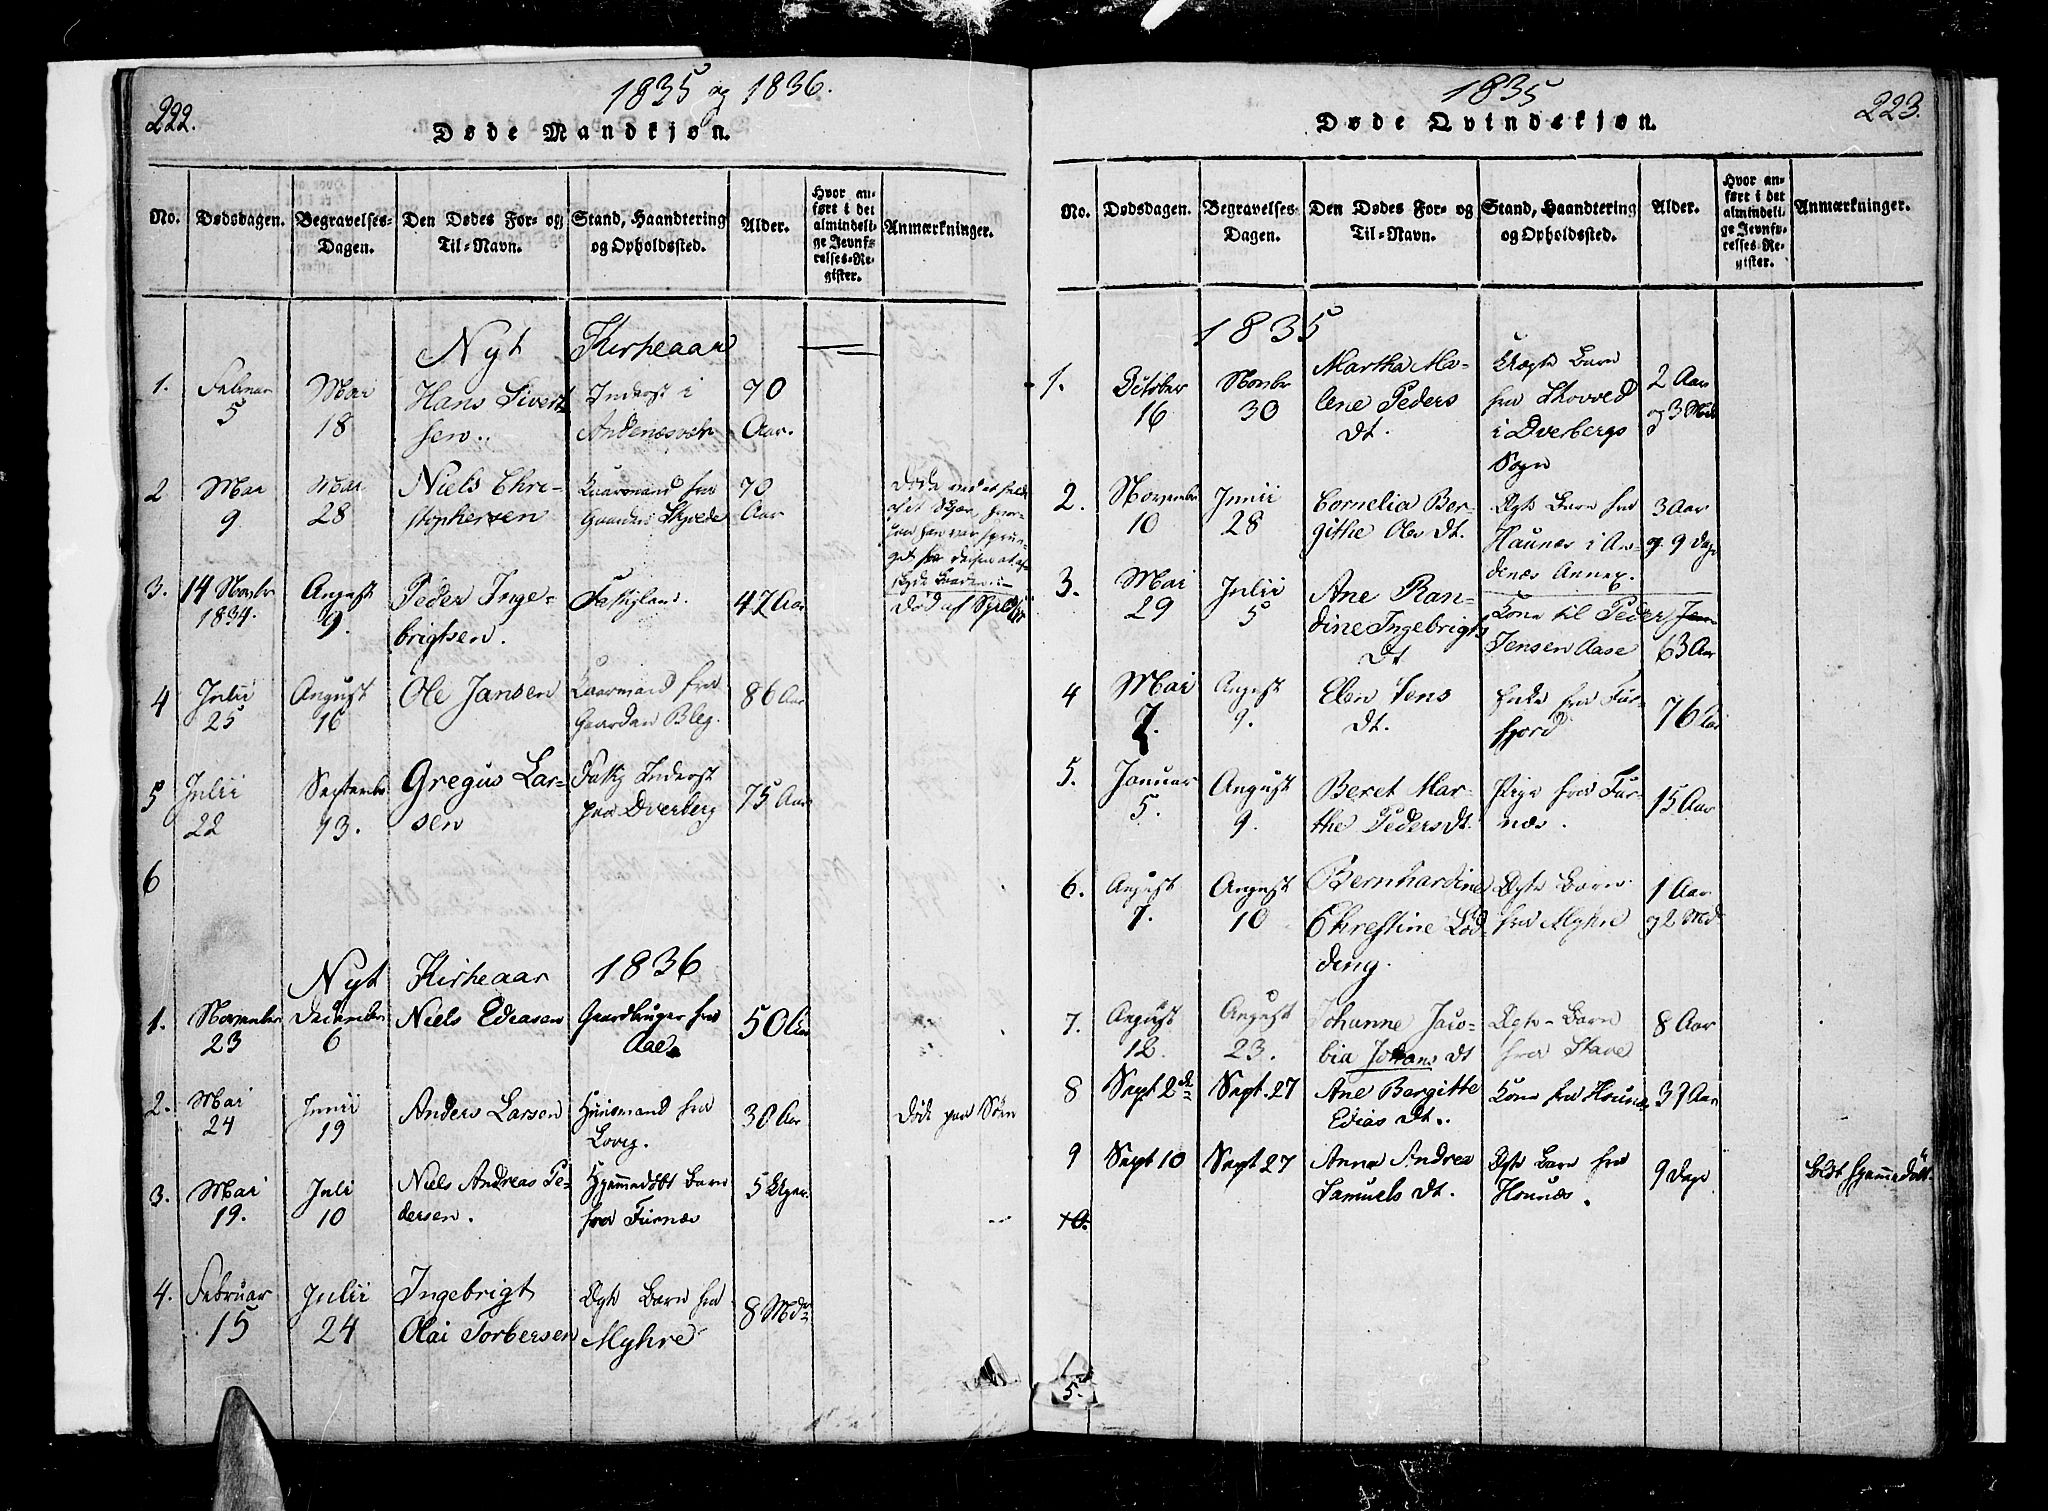 222.
1835 og 1836.
Døde Mandkjøn.
No.
Dødsdagen.
Begravelses-
Dagen.
Den Dødes For- og
Til-Navn.
Stand, Haandtering
og Opholdssted.
Alder.
Hvor an-
ført i det
almindeli-
ge Jevnfø-
relses-Re-
gister.
Anmærkninger.
Nyt Kirkeaar
1.
Februar
5
Mai
18
Hans Sivert
sen.
Inderst i
90
Aar.
2
Mai
9
Mai
28
Niels Chri-
stophersen
Kaarmand fra
Gaarden
70
Aar
3.
14 Novbr
1834.
August
9.
Peder Inge-
brigtsen.
47 Aar
Død af
4
Julii
25
August
16
Ole Jansen
Kaarmand fra
Gaarden Bleg.
86 Aar
5
Julii
22
Septembr
13.
Gregus Lar-
sen
Fattig Inderst
paa Dverberg
75 Aar
6
Nyt Kirkeaar 1836
1.
November
23
December
6
Niels Ediasen
Gaardbruger fra
Aase
50 Aar
2.
Mai
24
Junii
19
Anders Larsen
Huusmand fra
30 Aar
Døde paa Søen
3.
Mai
19.
Juli
10
Niels Andreas Pe-
dersen.
Hjemmedøbt Barn
fra Furnæs
5 Uger.
4.
Februar
15
Julii
24
Ingebrigt
Olai Torbersen
Ægte Barn fra
Myhre
8 Mdr
1835
223.
Døde Qvindekjøn.
No.
Dødsdagen.
Begravelses-
Dagen.
Den Dødes For- og
Til-Navn.
Stand, Haandtering
og Opholdssted.
Alder.
Hvor an-
ført i det
almindeli-
ge Jevnfø-
relses-Re-
gister.
Anmærkninger.
1835
1.
October
16
Novbr
30
Martha Ma-
lene Peders
Dt.
Uægte Barn
fra Skovvold
i Dverbergs
Sogn
2 Aar
og 3 Md
2.
November
10
Junii
28
Cornelia Ber-
githe Oles Dt.
Ægte Barn fra
Haunæs i An-
denæs Annex.
3 Aar
og 9 Dage
3.
Mai
29
Julii
5
Ane Ran-
dine Ingebrigts
Dt
Kone til Peder
Jensen Aase
63 Aar
4
Mai
7.
August
9.
Elen Jons
Dt.
Enke fra Fis-
fjord
76 Aar
5.
Januar
5.
August
9.
Beret Mar-
the Pedersdt.
Pige fra Fur-
næs.
15 Aar
6.
August
7.
August
10
Bernhardine
Chrestine Lød-
ding.
Ægte Barn
fra Myhre
1 Aar
og 2 Md
7.
August
12.
August
23.
Johanne Jaco-
bia Johans Dt
Ægte Barn
fra Stave
8 Aar
8
Sept 2den
Sept. 27
Ane Bergitte
Edias Dt.
Kone fra Hounæs
37 Aar
9
Sept 10
Sept 27
Anna Andrea
Samuels Dt.
Ægte Barn fra
Hounæs.
9 Dage
hjemmedøbt.
10.
5.